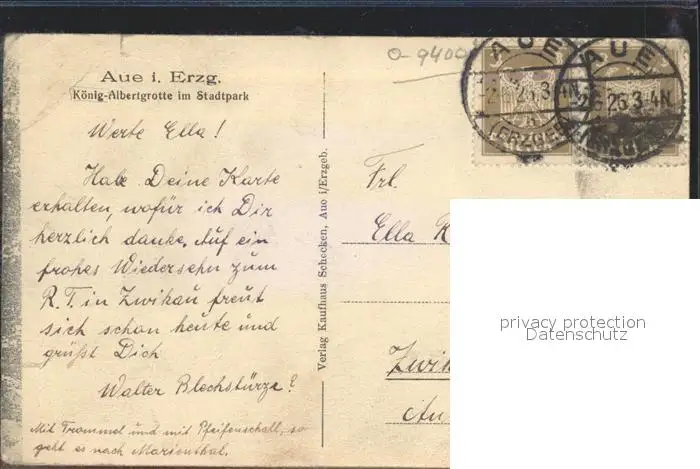 O-9400
AUE
AUE
26.3-4N.
26.3-4N.
(ERZGEB.)
Aue i. Erzg.
König-Albertgrotte im Stadtpark
Werte Ella!
Habe Deine Karte
erhalten, wofür ich Dir
herzlich danke. Auf ein
frohes Wiedersehn zum
R.T. in Zwikau freut
sich schon heute und
grüßt Dich
Walter Blechstürze?
Mit Trommel und mit Pfeifenschall, so
geht es nach Marienthal.
Verlag Kaufhaus Schocken, Aue i/Erzgeb.
Frl.
Ella
Zwik
privacy protection
Datenschutz